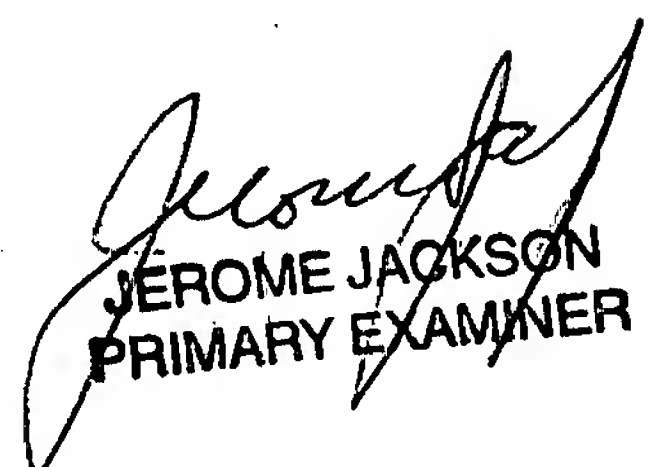 JEROME JACKSON
PRIMARY EXAMINER